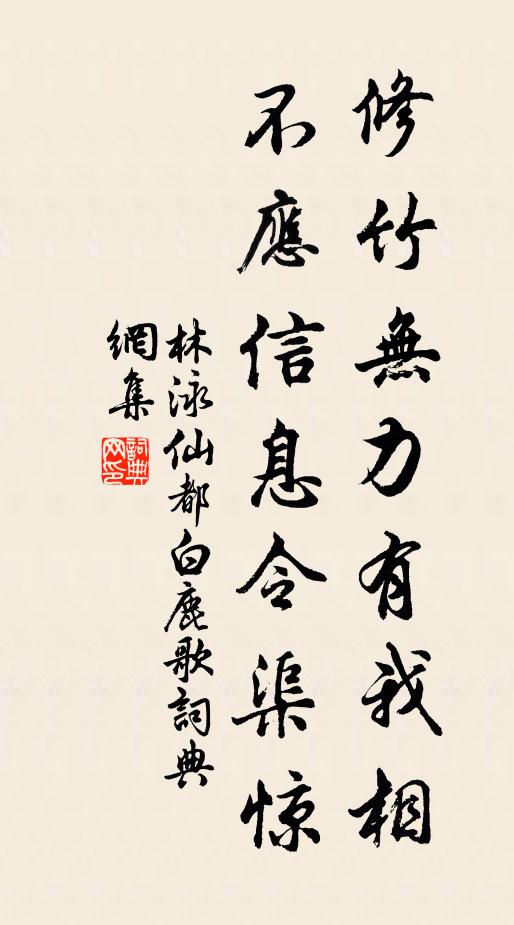 修竹無力有我相
不應信息令渠惊
林泳仙都白鹿歌詞典
網集
詞典網印